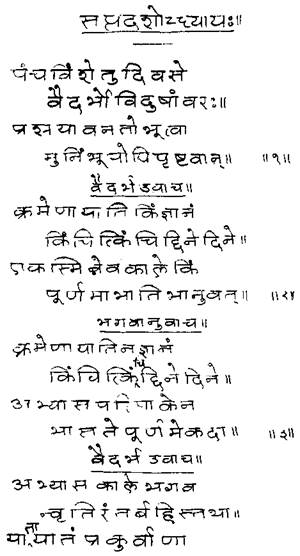 सप्तदशोऽध्यायः॥
पंचविंशेतुदिवसे
वैदर्भोविदुषांवरः॥
प्रश्रयावनतोभूत्वा
मुनिंभूयोपिपृष्टवान्॥ ॥१॥
वैदर्भउवाच॥
क्रमेणायातिकिंज्ञानं
किंचित्किंचिद्दिनेदिने॥
एकस्मिन्नेवकालेकिं
पूर्णमाभातिभानुवत्॥ ॥२॥
भगवानुवाच॥
क्रमेणायातिनज्ञानं
किंचित्किंचिद्दिनेदिने॥
अभ्यासपरिपाकेन
भासतेपूर्णमेकदा॥ ॥३॥
वैदर्भउवाच॥
अभ्यासकालेभगव
न्वृत्तिरंतर्बहिस्तथा॥
यातायातंप्रकुर्वाणा